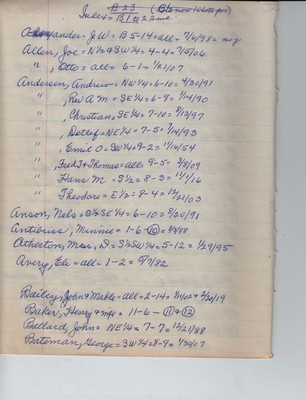 B 23 (B15 now 
Index = B19 22 
Alexander J.W. = B 5-14 = all = 7/6/98 =
Allen, Joe = N½ & SW¼ = 4-4 = 7/5/06
" , Otto = all = 6-1 = 1/21/07
Anderson, Andrew = NW¼ = 6-10 = 4/30/91
" , A M = SE¼ = 6-9 = 1/14/90
" , Christian, SE¼ = 7-10 = 8/13/97
" , Detlef = NE¼ = 7-5 = 7/14/93
" , Emil O = SW¼ = 9-2 = 11/10/54
" , Fred J & Thomas = all = 9-5 = 3/8/09
" Hans M = S½ = 8-3 = 11/1/16
" Theodore = E½ = 8-4 = 12/21/03
Anson, Nels = S½ SE¼ = 6-10 = 8/20/91
Antibuss, Minnie = 1-6
Atherton, Mrs, D = S½ SW¼ = 5-12 = 1/29/95
Avery, Eli = all = 1-2 = 9/7/82
Bailey, John & Mable = all = 2-14 =
Baker, Henry & wife = 11-6 - 11 & 12
Ballard, John = NE¼ = 7-7 = 12/21/88
Bateman, George = SW¼ = 8-9 = 1/30/07